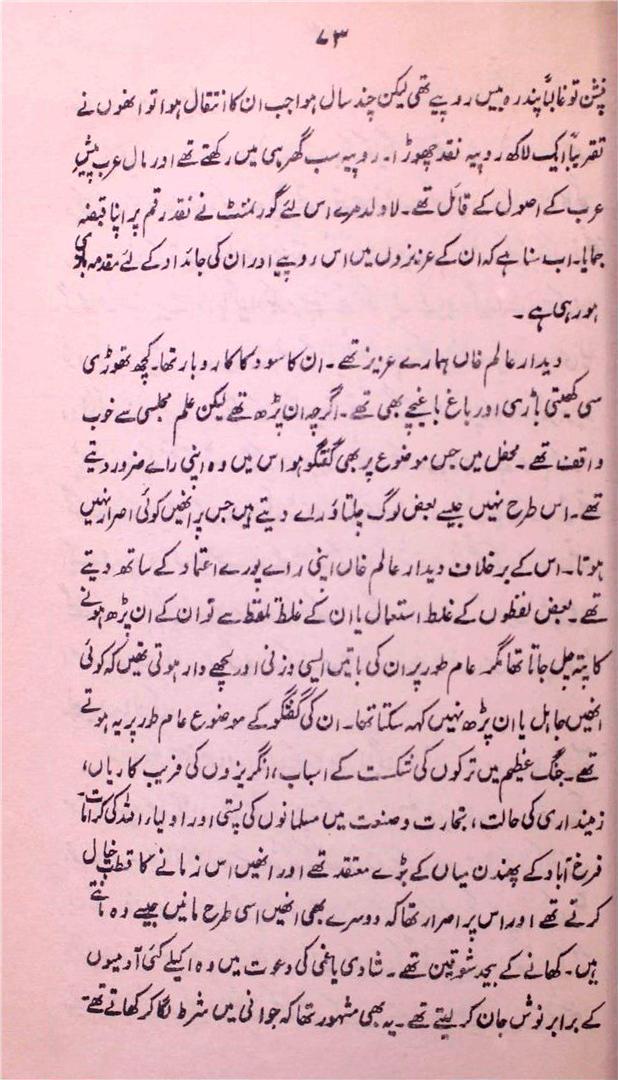 ۷۳
پنشن تو غالباً پندرہ بیس روپیے تھی لیکن چند سال ہوا جب ان کا انتقال ہوا تو انھوں نے
تقریباً ایک لاکھ روپیہ نقد چھوڑا۔ روپیہ سب گھر ہی میں رکھتے تھے اور مال عرب پیش
عرب کے اصول کے قائل تھے۔ لاولد مرے اس لئے گورنمنٹ نے نقد رقم پر اپنا قبضہ
جمایا۔ اب سنا ہے کہ ان کے عزیزوں میں اس روپیے اور ان کی جائداد کے لئے مقدمہ بازی
ہو رہی ہے۔
دیدار عالم خاں ہمارے عزیز تھے۔ ان کا سود کا کاروبار تھا۔ کچھ تھوڑی
سی کھیتی باڑی اور باغ باغیچے بھی تھے۔ اگرچہ ان پڑھ تھے لیکن علم مجلسی سے خوب
واقف تھے۔ محفل میں جس موضوع پر بھی گفتگو ہو اس میں وہ اپنی رائے ضرور دیتے
تھے۔ اس طرح نہیں جیسے بعض لوگ چلتاؤ رائے دیتے ہیں جس پر انھیں کوئی اصرار نہیں
ہوتا۔ اس کے برخلاف دیدار عالم خاں اپنی رائے پورے اعتماد کے ساتھ دیتے
تھے۔ بعض لفظوں کے غلط استعمال یا ان کے غلط تلفظ سے تو ان کے ان پڑھ ہونے
کا پتہ چل جاتا تھا مگر عام طور پر ان کی باتیں ایسی وزنی اور لچھے دار ہوتی تھیں کہ کوئی
انھیں جاہل یا ان پڑھ نہیں کہہ سکتا تھا۔ ان کی گفتگو کے موضوع عام طور پر یہ ہوتے
تھے۔ جنگ عظیم میں ترکوں کی شکست کے اسباب، انگریزوں کی فریب کاریاں،
زمینداری کی حالت، تجارت و صنعت میں مسلمانوں کی پستی اور اولیاء اللہ کی کرامات۔
فرخ آباد کے پھندن میاں کے بڑے معتقد تھے اور انھیں اس زمانے کا قطب خیال
کرتے تھے اور اس پر اصرار تھا کہ دوسرے بھی انھیں اسی طرح مانیں جیسے وہ مانتے
ہیں۔ کھانے کے بیحد شوقین تھے۔ شادی یا غمی کی دعوت میں وہ اکیلے کئی آدمیوں
کے برابر نوش جان کر لیتے تھے۔ یہ بھی مشہور تھا کہ جوانی میں شرط لگا کر کھاتے تھے